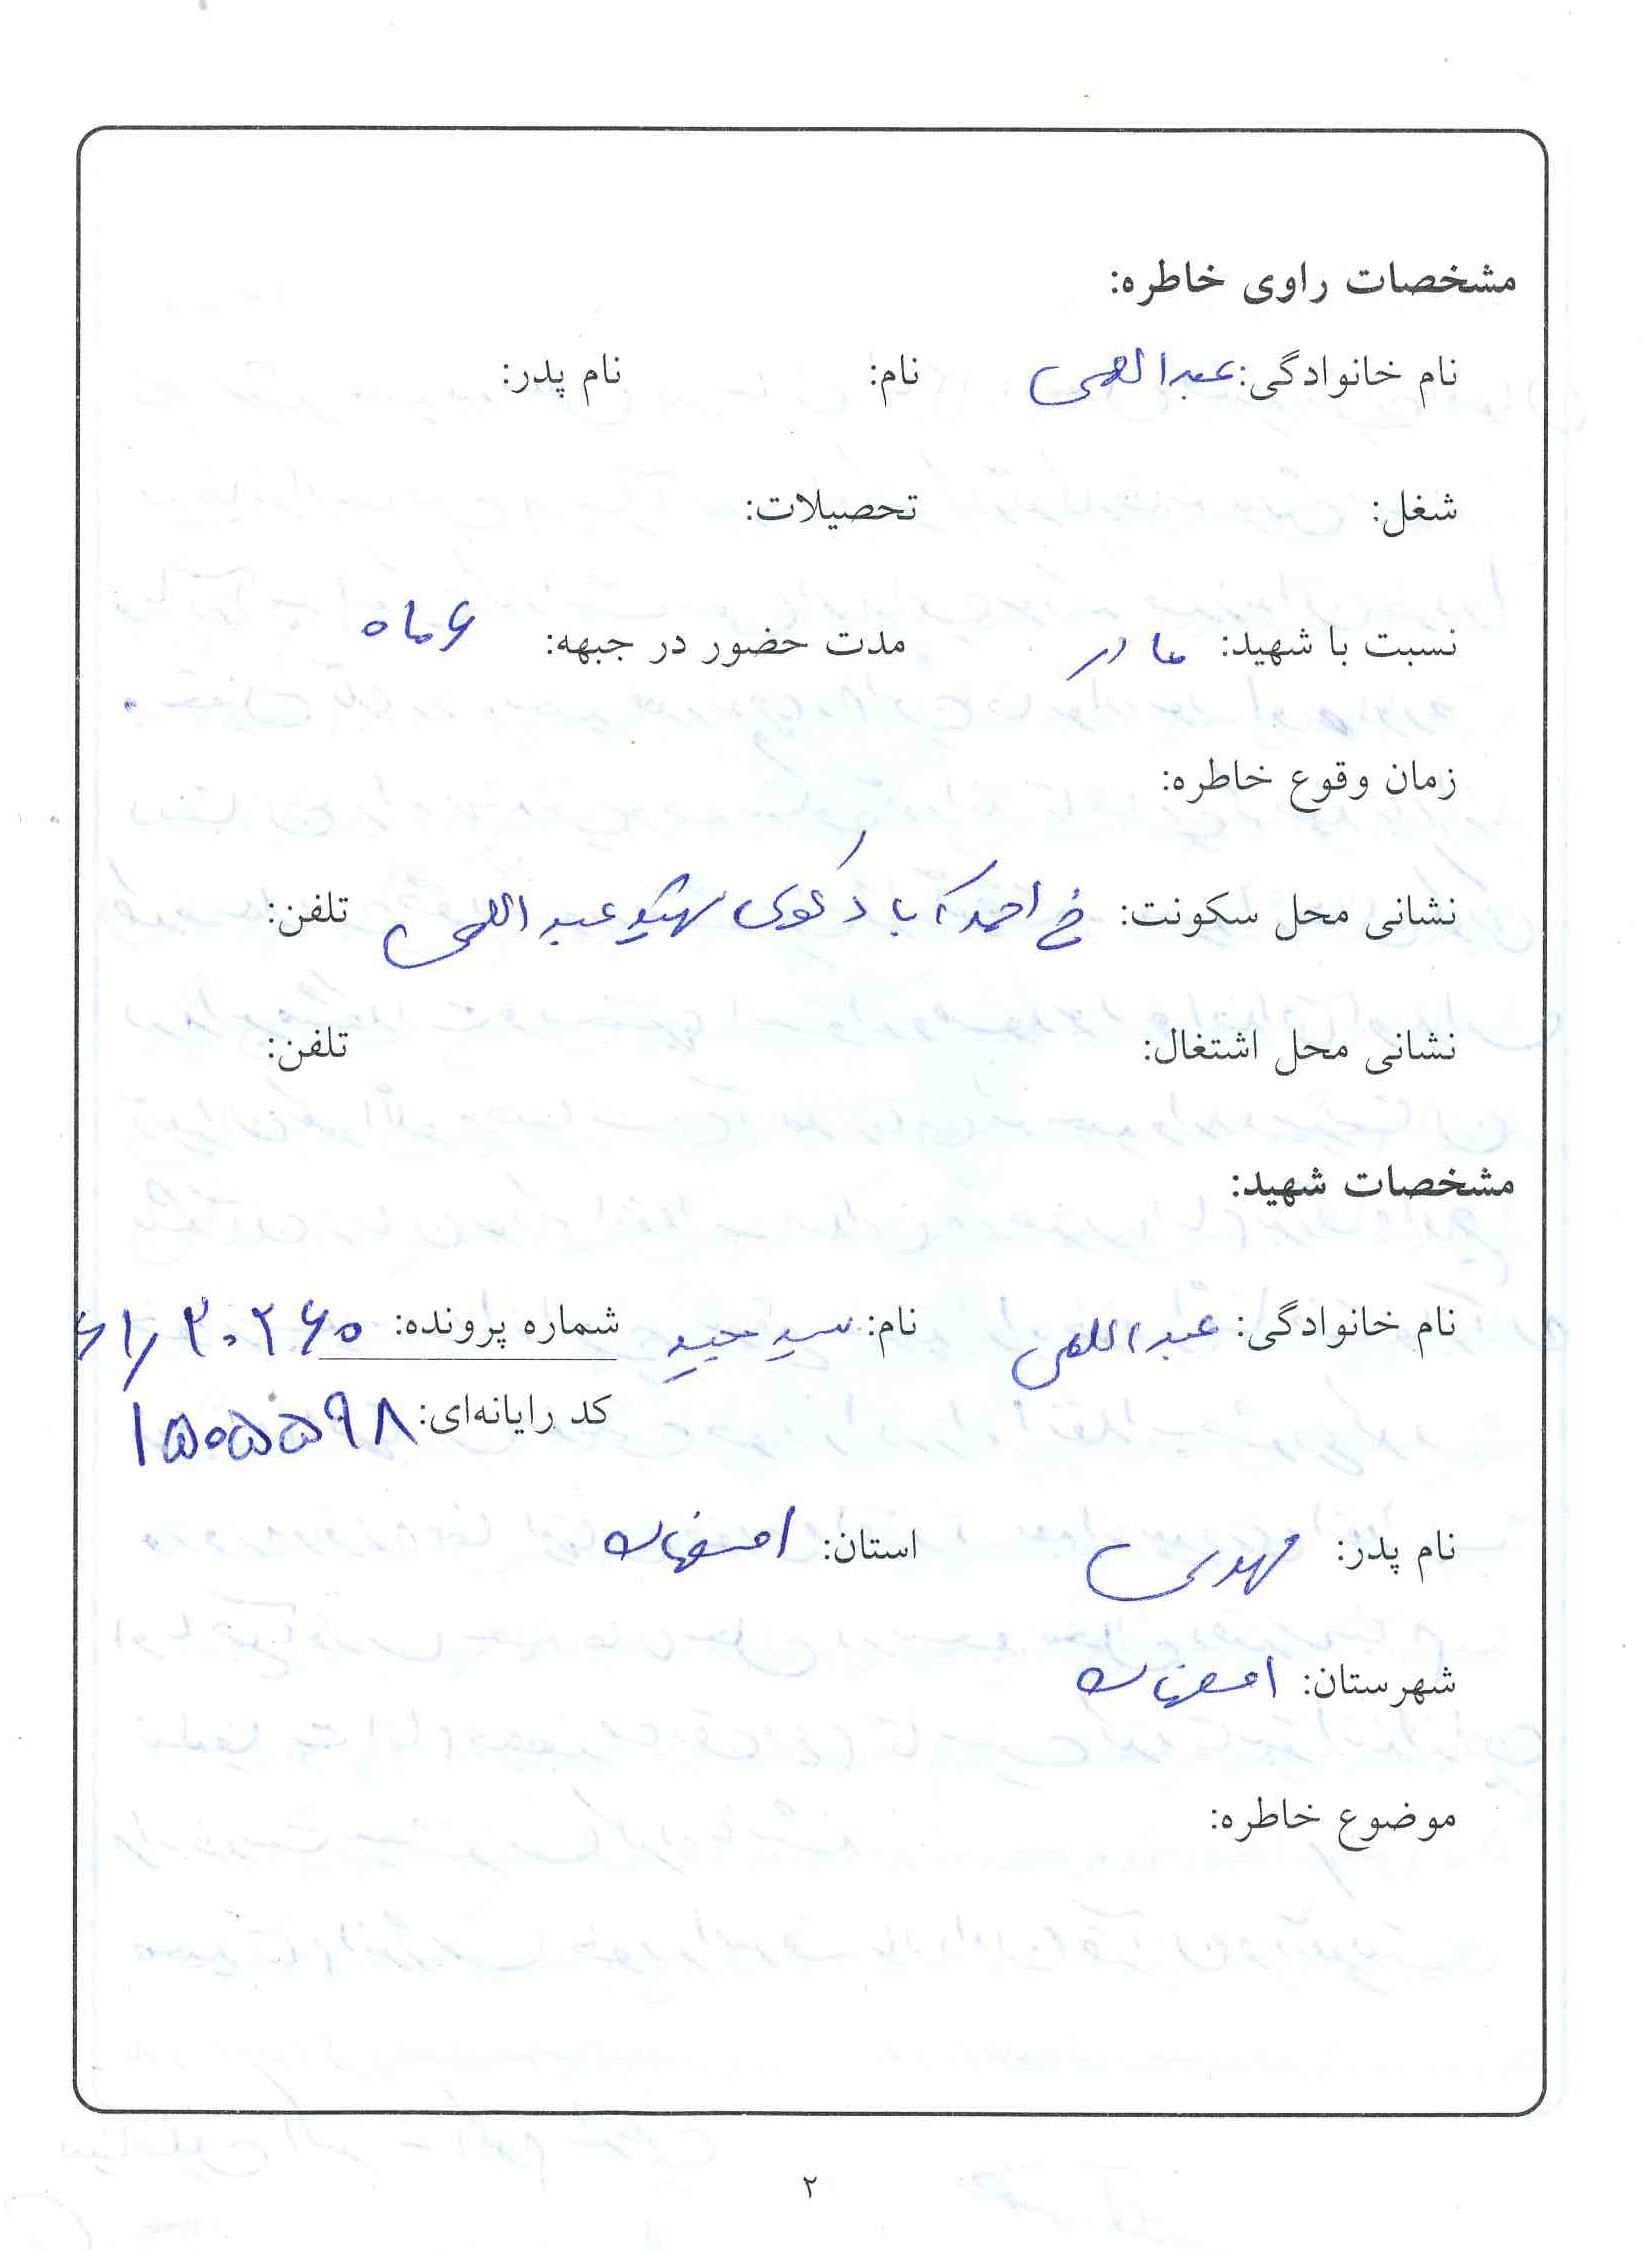 مشخصات راوی خاطره:
نام خانوادگی: عبدالهی نام: نام پدر:
شغل: تحصیلات:
نسبت با شهید: مادر مدت حضور در جبهه: ۶ ماه
زمان وقوع خاطره:
نشانی محل سکونت: خ احمدآباد کوی شهید عبداللهی تلفن:
نشانی محل اشتغال: تلفن:
مشخصات شهید:
نام خانوادگی: عبداللهی نام: سید حمید شماره پرونده: ۶۱/۳۰۲۶۰
کد رایانه‌ای: ۱۵۰۵۵۹۸
نام پدر: مهدی استان: اصفهان
شهرستان: اصفهان
موضوع خاطره:
۲